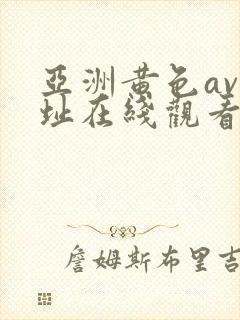 亞洲黃色av
址在綫觀看
詹姆斯布里吉